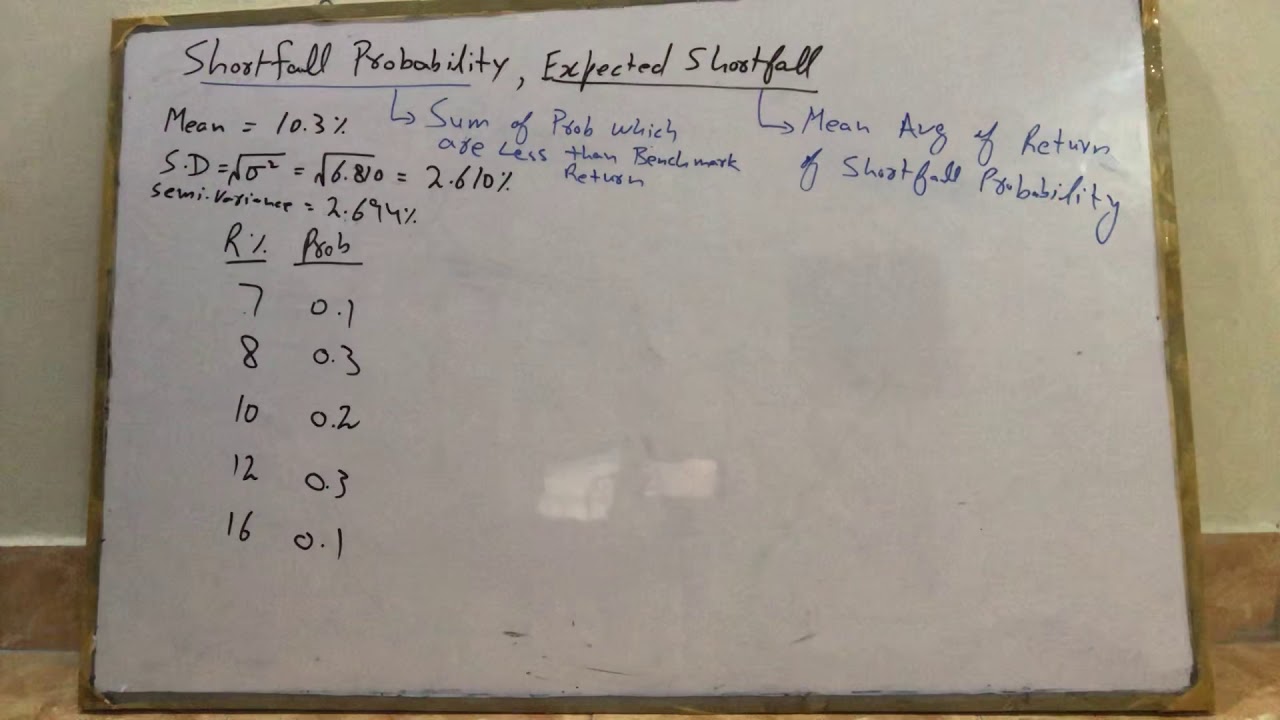 Shortfall Probability, Expected Shortfall
Mean = 10.3%
↳ Sum of Prob which
are Less than Benchmark
Return
↳ Mean Avg of Return
of Shortfall Probability
S.D = √σ² = √6.810 = 2.610%
Semi-Variance = 2.694%
R% Prob
7 0.1
8 0.3
10 0.2
12 0.3
16 0.1